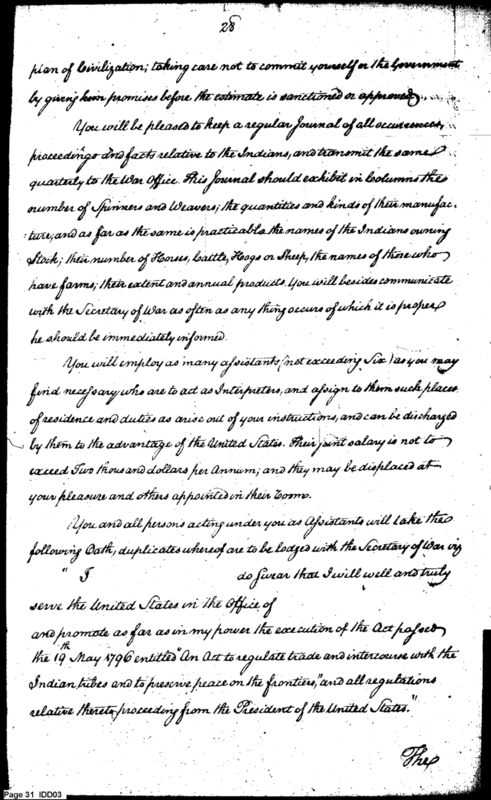 28
plan of Civilization; taking care not to commit yourself or the Government
by giving promises before the estimate is sanctioned or approved.
You will be pleased to keep a regular Journal of all occurrences,
proceedings and facts relative to the Indians, and transmit the same
quarterly to the War Office. This Journal should exhibit in Columns the
number of Spinners and Weavers; the quantities and kinds of their manufac-
ture; and as far as the same is practicable the names of the Indians owning
Stock; their number of Horses, Cattle, Hogs or Sheep, the names of those who
have farms; their extent and annual products. You will besides communicate
with the Secretary of War as often as any thing occurs of which it is proper
he should be immediately informed.
You will employ as many assistants (not exceeding Six) as you may
find necessary, who are to act as Interpreters, and assign to them such places
of residence and duties as arise out of your instructions, and can be discharged
by them to the advantage of the United States. Their joint salary is not to
exceed Two thousand dollars per Annum; and they may be displaced at
your pleasure and others appointed in their room.
You and all persons acting under you as Assistants will take the
following Oath, duplicates whereof are to be lodged with the Secretary of War viz
"I do Swear that I will well and truly
serve the United States in the Office of
and promote as far as in my power the execution of the Act passed
the 19th May 1796 entitled "An Act to regulate trade and intercourse with the
Indian tribes and to preserve peace on the frontiers," and all regulations
relative thereto proceeding from the President of the United States."
The
Page 31 IDD03